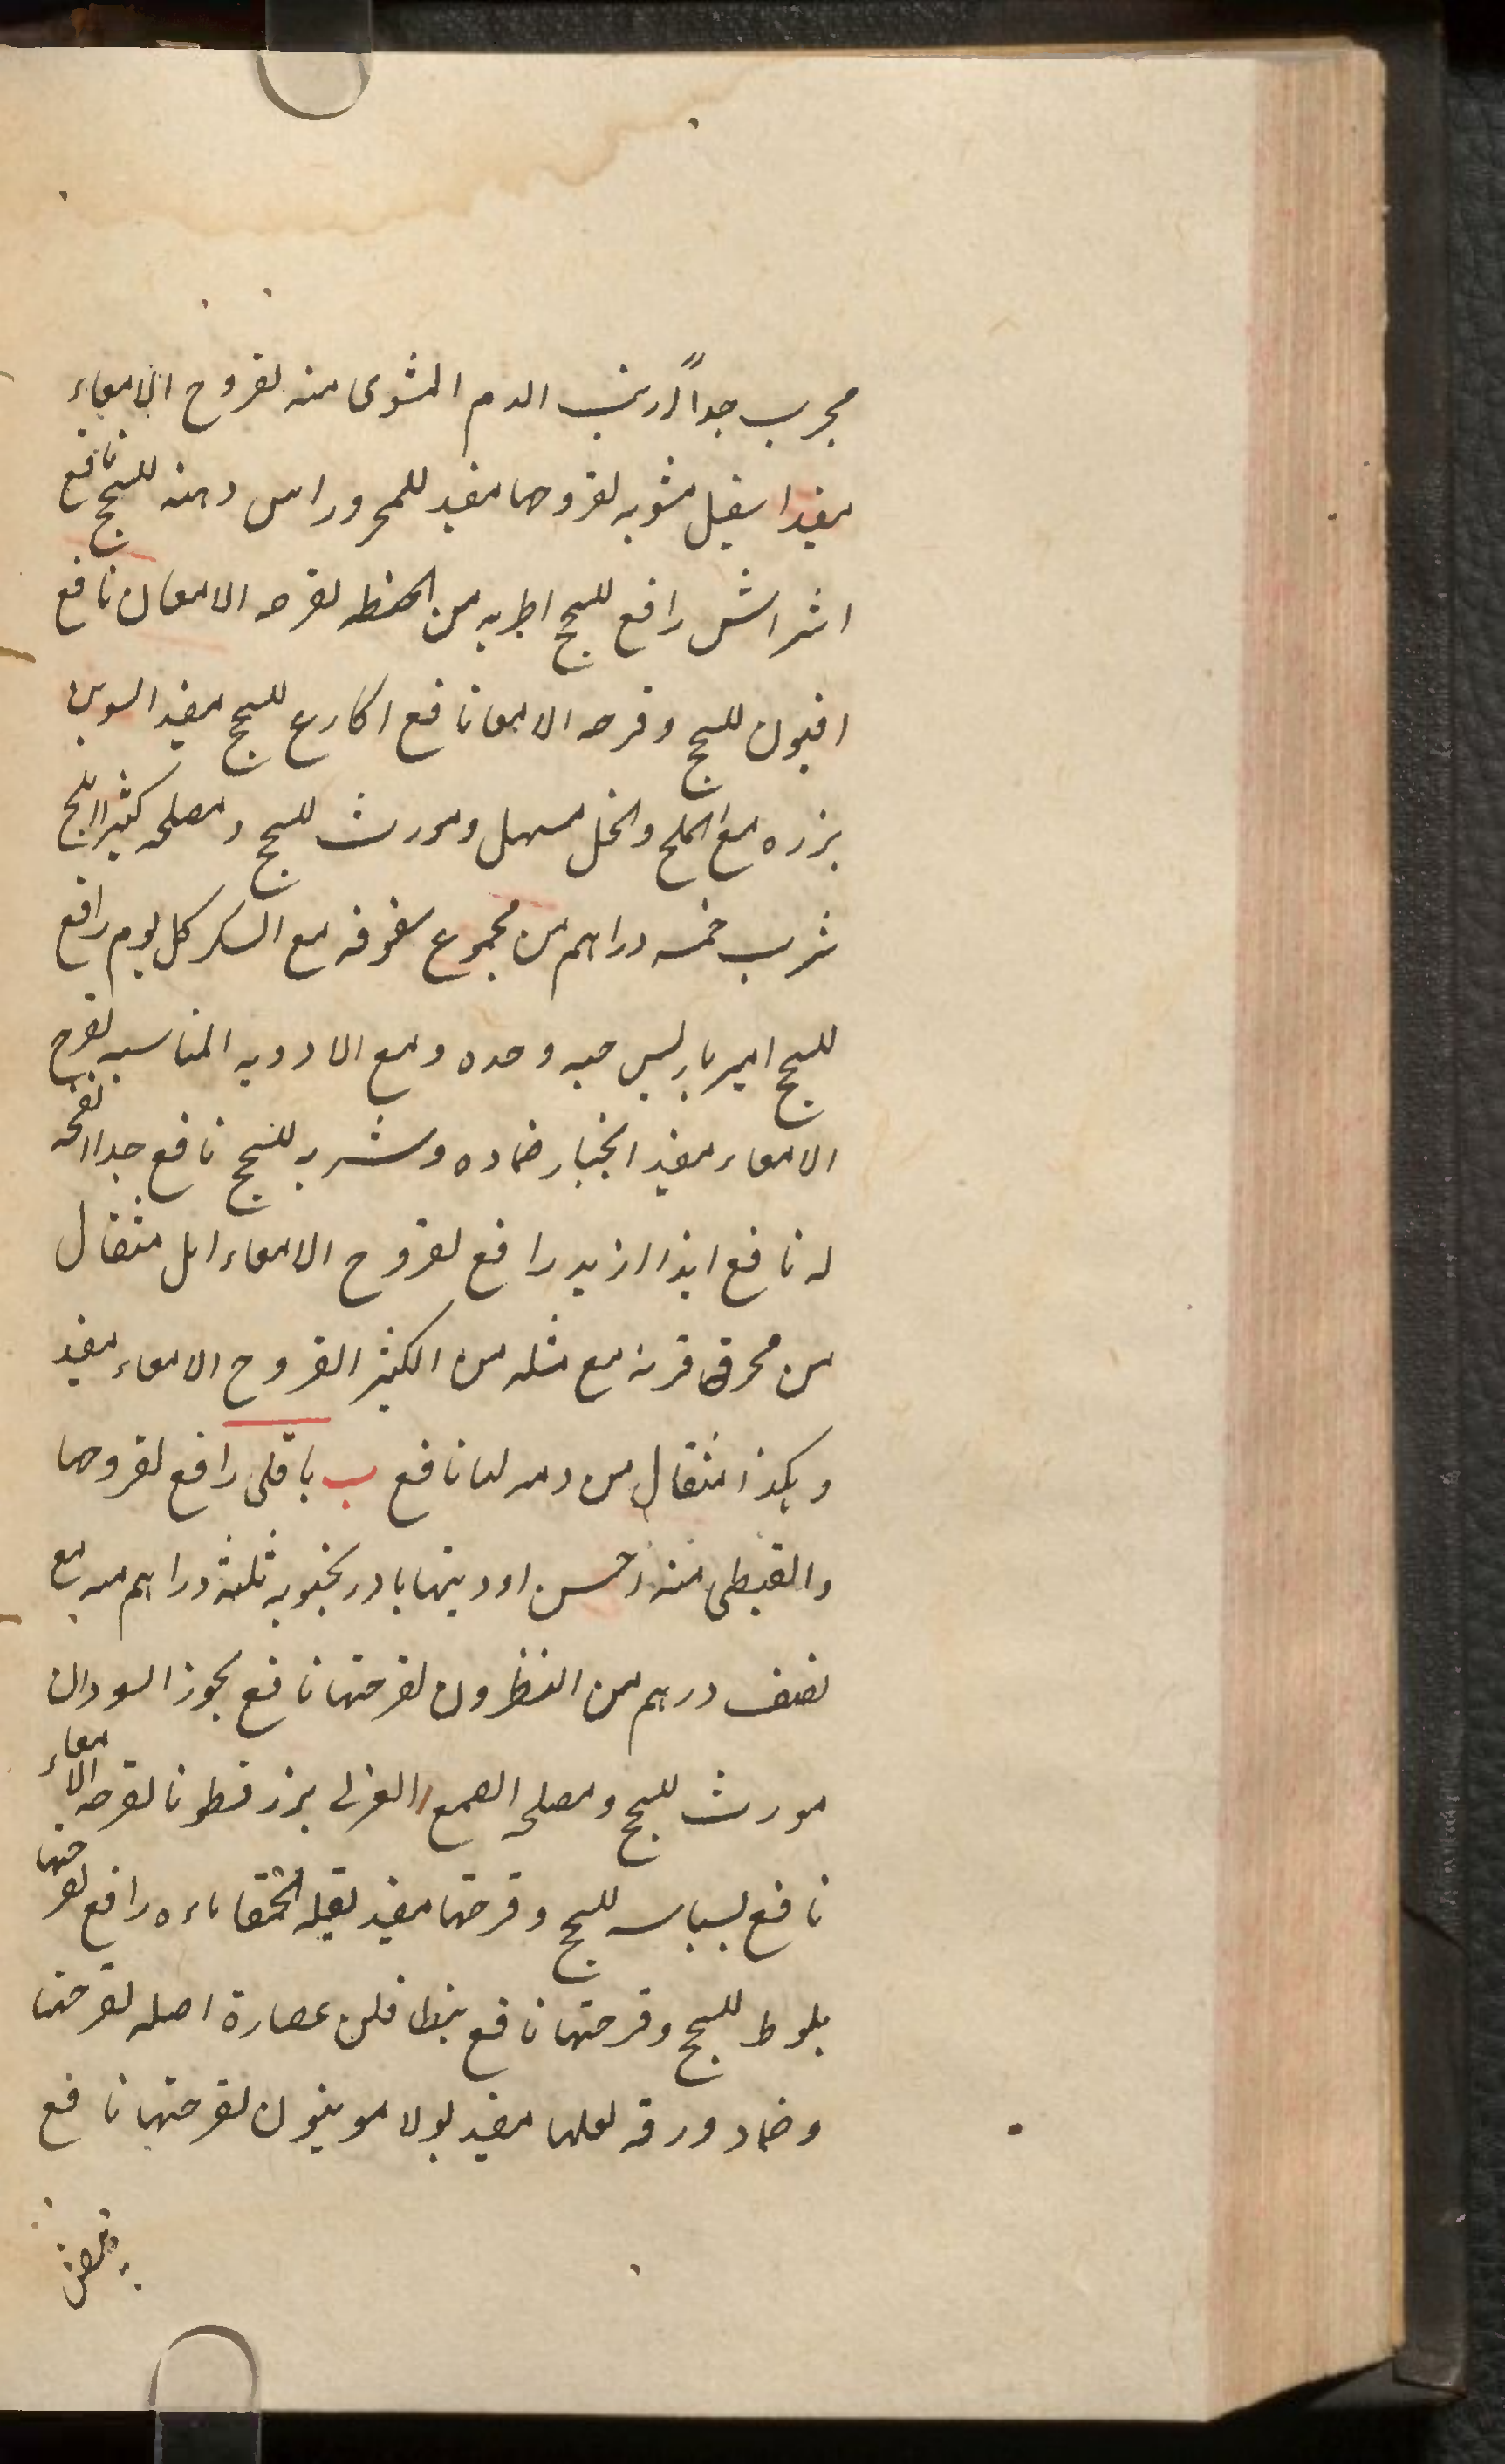 مجرب جداً ارنب الدم المشوى منه لقروح الامعاء
مفيد اسقيل مشويه لقروحها مفيد للمحرور اس دهنه للسحج نافع
اشراش رافع للسحج اطريه من الحنطه لقرحه الامعا نافع
افيون للسحج وقرحه الامعا نافع اكارع للسحج مفيد
بزره مع الملح والخل مسهل ومورث للسحج ومصلحه كثيرا
شرب خمسه دراهم من مجموع سفوفه مع السكر كل يوم رافع
للسحج اميرباريس حبه وحده ومع الادويه المناسبه لقرح
الامعاء مفيد انجبار ضماده وشربه للسحج نافع جدا انفحه
له نافع رافع لقروح الامعاء ايل مثقال
من محرق قرنه مع مثله من الكثيرا لقروح الامعاء مفيد
وهكذا مثقال من دمه لها نافع ب باقلى رافع لقروحها
والقبطى منه احسن ادويتها بادرنجبويه ثلثة دراهم منه مع
نصف درهم من النطرون لقرحتها نافع بخور السودان
مورث للسحج ومصلحه الصمغ العربى بزرقطونا لقرحه الامعاء
نافع بسباسه للسحج وقرحتها مفيد بقلة الحمقا ماءه رافع لقرحتها
بلوط للسحج وقرحتها نافع بنطافلن عصارة اصله لقرحتها
وضماد ورقه لعلها مفيد بولامونيون لقرحتها نافع